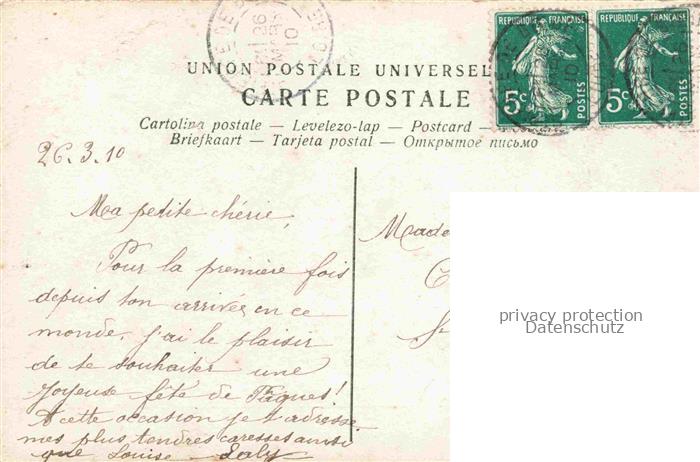 REPUBLIQUE FRANÇAISE
5c POSTES
REPUBLIQUE FRANÇAISE
5c POSTES
26
10
UNION POSTALE UNIVERSEL
CARTE POSTALE
Cartolina postale — Levelezo-lap — Postcard —
Briefkaart — Tarjeta postal — Открытое письмо
26.3.10
Ma petite chérie,
Pour la première fois
depuis ton arrivée en ce
monde, j'ai le plaisir
de te souhaiter une
Joyeuse fête de Pâques!
A cette occasion je t'adresse
mes plus tendres caresses ainsi
que Louise
Made
privacy protection
Datenschutz